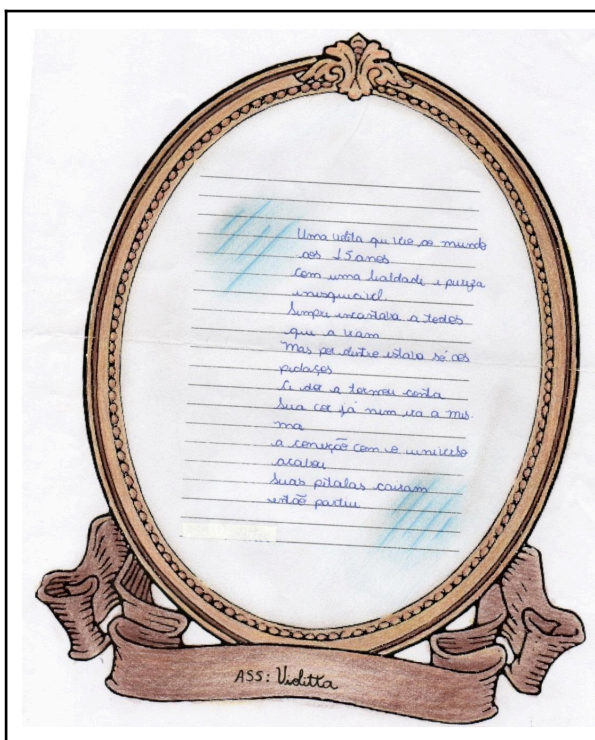 Uma violita que veio ao mundo
aos 15 anos
com uma lealdade e pureza
inesquecivel
Sempre encantava a todos
que a viam
Mas por dentro estava só aos
pedaços
A dor a tomou conta
Sua cor já nem era a mes-
ma
a conexão com o universo
acabou
Suas pétalas cairam
então partiu
ASS: Violitta